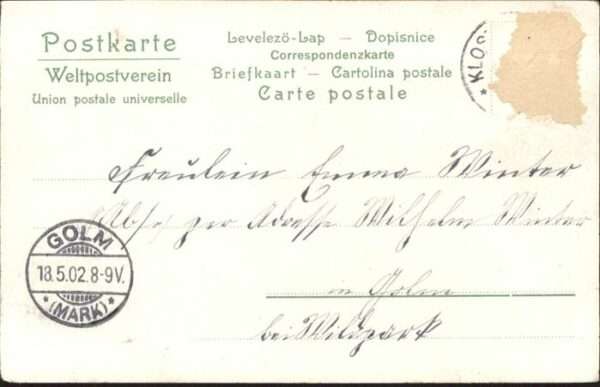 Postkarte
Weltpostverein
Union postale universelle
Levelező-Lap — Dopisnice
Correspondenzkarte
Briefkaart — Cartolina postale
Carte postale
* KLO
Fräulein Emma Winter
per Adresse Wilhelm Winter
in Golm
bei Wildpark
GOLM
18.5.02.8-9V.
* (MARK) *